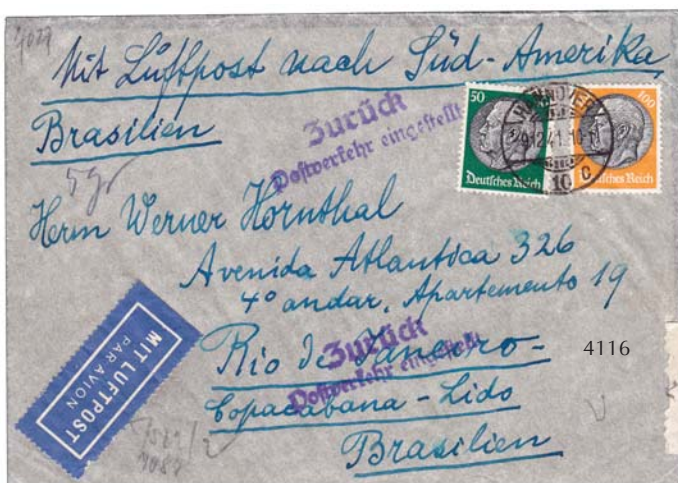 4079
Mit Luftpost nach Süd-Amerika
Brasilien
Zurück
Postverkehr eingestellt
50
Deutsches Reich
100
Deutsches Reich
HANNOVER
9.12.41.10
10 c
5 gr
Herrn Werner Hornthal
Avenida Atlantica 326
4º andar, Apartemento 19
Rio de Janeiro-
Zurück
Postverkehr eingestellt
4116
Copacabana-Lido
Brasilien
MIT LUFTPOST
PAR AVION